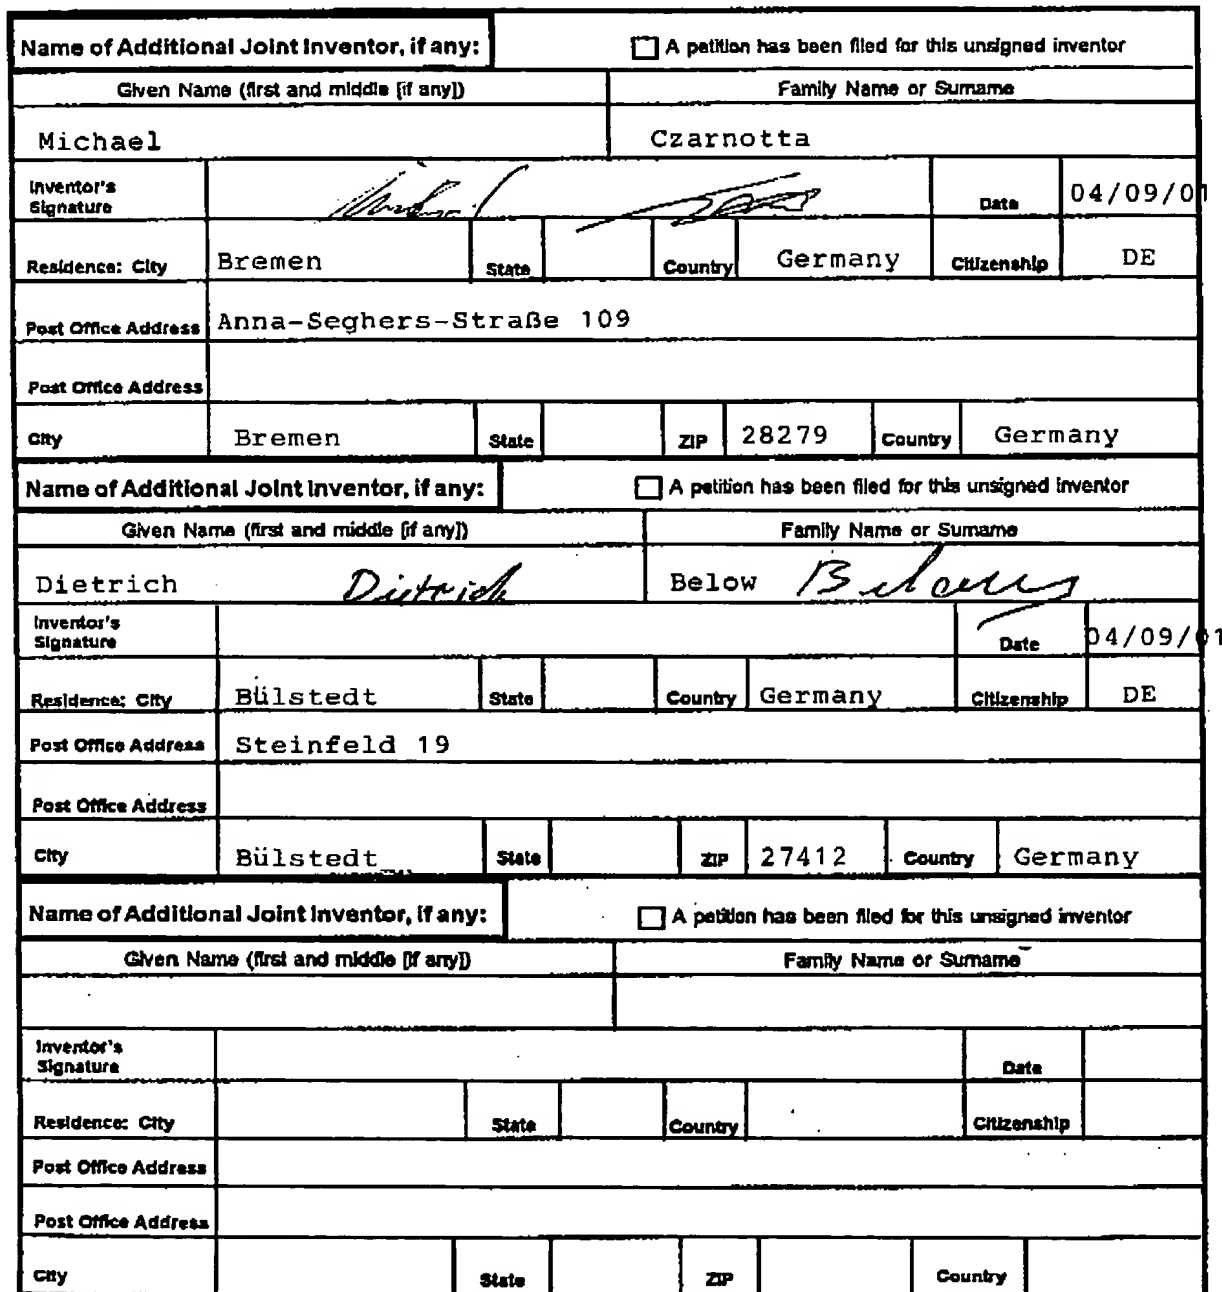 Name of Additional Joint Inventor, if any: A petition has been filed for this unsigned inventor
Given Name (first and middle [if any]) Family Name or Surname
Michael Czarnotta
Inventor's Signature Date 04/09/01
Residence: City Bremen State Country Germany Citizenship DE
Post Office Address Anna-Seghers-Straße 109
Post Office Address
City Bremen State ZIP 28279 Country Germany
Name of Additional Joint Inventor, if any: A petition has been filed for this unsigned inventor
Given Name (first and middle [if any]) Family Name or Surname
Dietrich Dietrich Below Below
Inventor's Signature Date 04/09/01
Residence: City Bülstedt State Country Germany Citizenship DE
Post Office Address Steinfeld 19
Post Office Address
City Bülstedt State ZIP 27412 Country Germany
Name of Additional Joint Inventor, if any: A petition has been filed for this unsigned inventor
Given Name (first and middle [if any]) Family Name or Surname
Inventor's Signature Date
Residence: City State Country Citizenship
Post Office Address
Post Office Address
City State ZIP Country